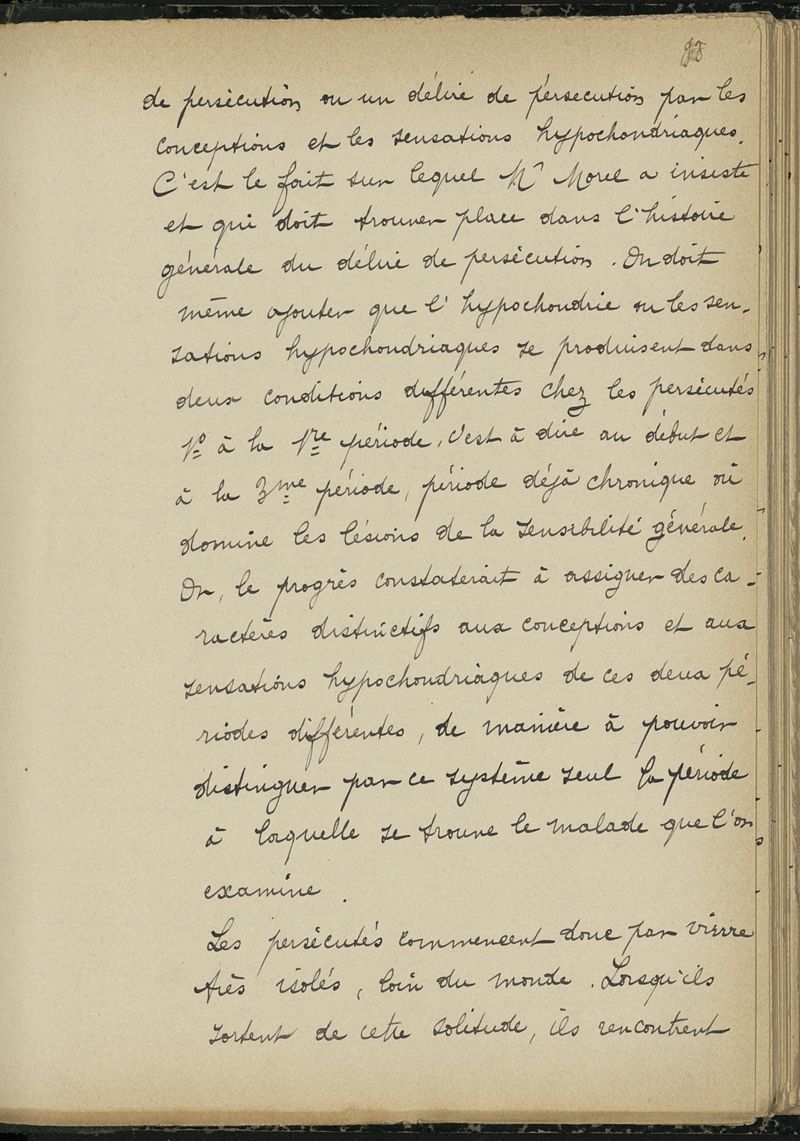 de persécution ou un délire de persécution par les
conceptions et les sensations hypochondriaques.
C'est le fait sur lequel Mr Morel a insisté
et qui doit trouver place dans l'histoire
générale du délire de persécution. On doit
même ajouter que l'hypochondrie ou les sen-
sations hypochondriaques se produisent dans
deux conditions différentes chez les persécutés
1º à la 1re période, c'est à dire au début et
à la 3me période, période déjà chronique où
domine les lésions de la sensibilité générale.
Or, le progrès constaterait à assigner des ca-
ractères distinctifs aux conceptions et aux
sensations hypochondriaques de ces deux pé-
riodes différentes, de manière à pouvoir
distinguer par ce système seul la période
à laquelle se trouve le malade que l'on
examine.
Les persécutés commencent donc par vivre
très isolés, loin du monde. Lorsqu'ils
sortent de cette solitude, ils rencontrent